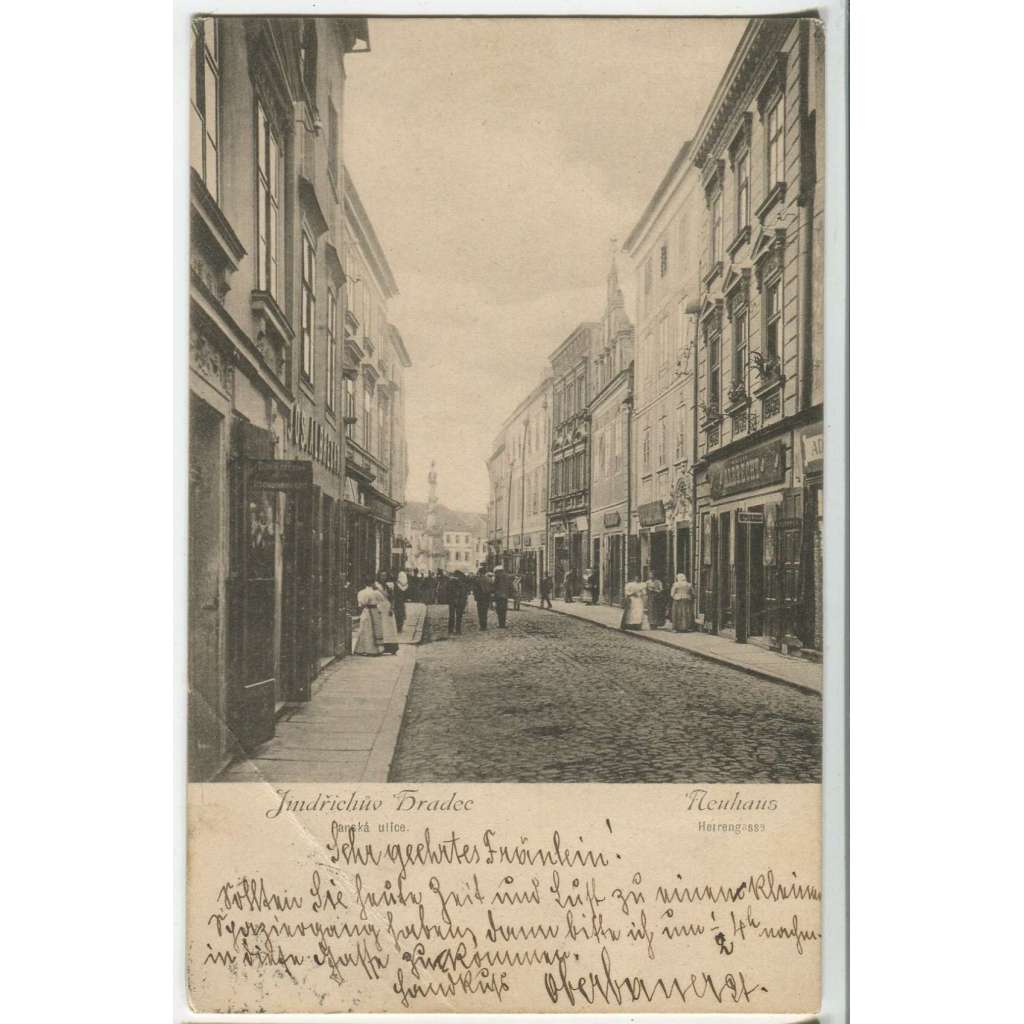 ALBRECHT
AD
Jindřichův Hradec
Panská ulice.
Neuhaus
Herrengasse
Sehr geehrtes Fräulein!
Sollten Sie heute Zeit und Lust zu einem kleinen
Spaziergang haben, dann bitte ich um ½ 4h nachm.
in diese Gasse zu kommen.
Handkuss Oberbauer